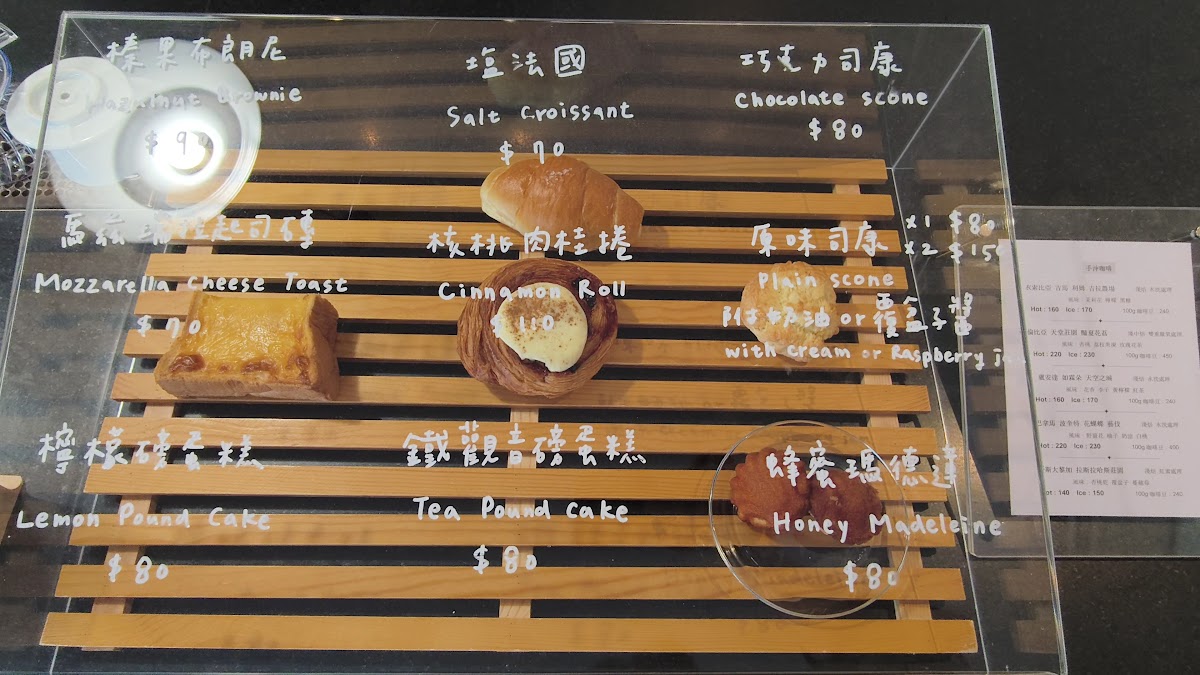 榛果布朗尼
Hazelnut Brownie
$90
塩法國
Salt Croissant
$70
巧克力司康
Chocolate scone
$80
馬茲瑞拉起司磚
Mozzarella cheese Toast
$70
核桃肉桂捲
Cinnamon Roll
$110
原味司康 x1 $80
x2 $150
Plain scone
附奶油 or 覆盆子醬
with cream or Raspberry
檸檬磅蛋糕
Lemon Pound Cake
$80
鐵觀音磅蛋糕
Tea Pound Cake
$80
蜂蜜瑪德蓮
Honey Madeleine
$80
手沖咖啡
Hot : 160 Ice : 170 100g 咖啡豆 : 240
Hot : 220 Ice : 230 100g 咖啡豆 : 450
盧安達
Hot : 160 Ice : 170 100g 咖啡豆 : 240
Hot : 220 Ice : 230 100g 咖啡豆 : 450
Hot : 140 Ice : 150